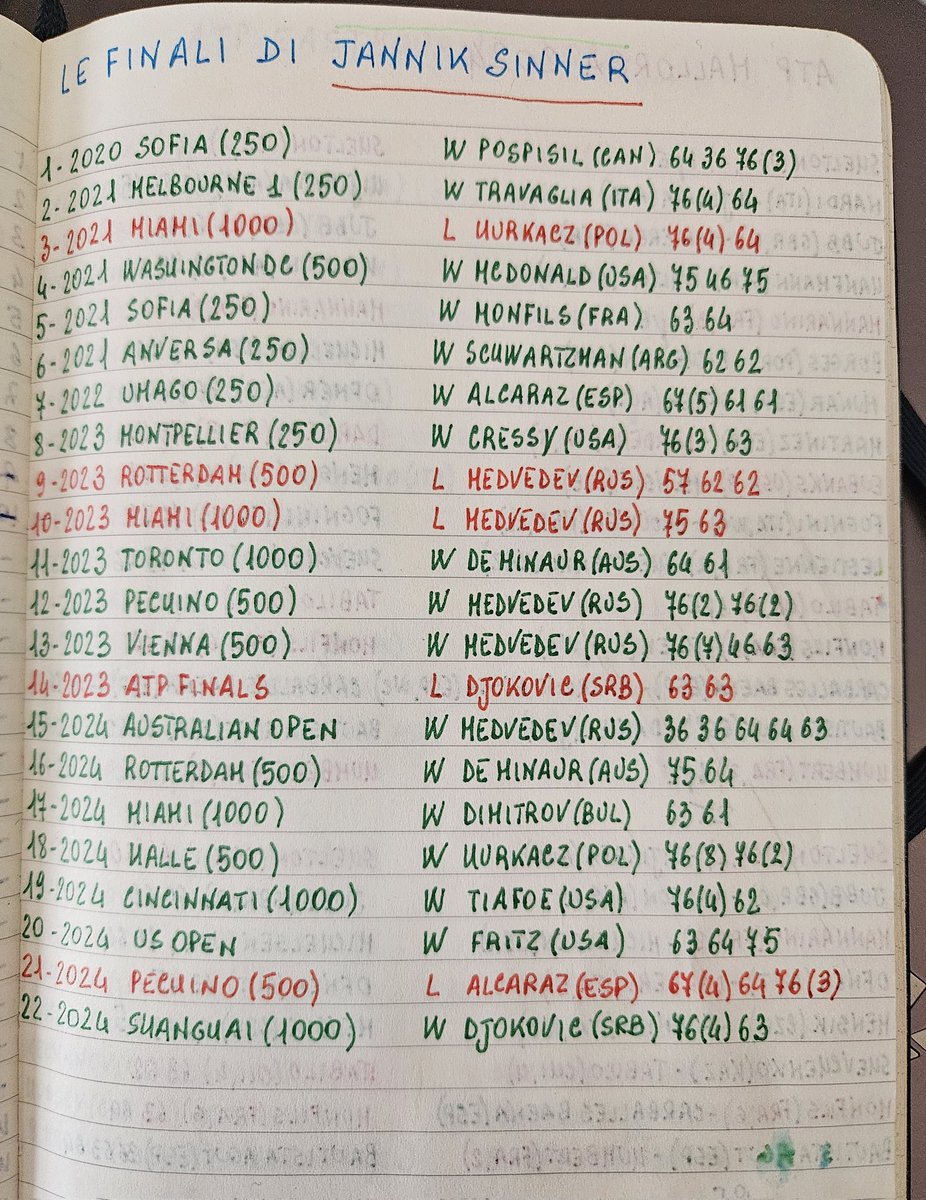 LE FINALI DI JANNIK SINNER
1-2020 SOFIA (250) W POSPISIL (CAN) 64 36 76(3)
2-2021 MELBOURNE 1 (250) W TRAVAGLIA (ITA) 76(4) 64
3-2021 MIAMI (1000) L HURKACZ (POL) 76(4) 64
4-2021 WASHINGTON DC (500) W MCDONALD (USA) 75 46 75
5-2021 SOFIA (250) W MONFILS (FRA) 63 64
6-2021 ANVERSA (250) W SCHWARTZMAN (ARG) 62 62
7-2022 UMAGO (250) W ALCARAZ (ESP) 67(5) 61 61
8-2023 MONTPELLIER (250) W CRESSY (USA) 76(3) 63
9-2023 ROTTERDAM (500) L MEDVEDEV (RUS) 57 62 62
10-2023 MIAMI (1000) L MEDVEDEV (RUS) 75 63
11-2023 TORONTO (1000) W DE MINAUR (AUS) 64 61
12-2023 PECHINO (500) W MEDVEDEV (RUS) 76(2) 76(2)
13-2023 VIENNA (500) W MEDVEDEV (RUS) 76(7) 46 63
14-2023 ATP FINALS L DJOKOVIC (SRB) 63 63
15-2024 AUSTRALIAN OPEN W MEDVEDEV (RUS) 36 36 64 64 63
16-2024 ROTTERDAM (500) W DE MINAUR (AUS) 75 64
17-2024 MIAMI (1000) W DIMITROV (BUL) 63 61
18-2024 HALLE (500) W HURKACZ (POL) 76(8) 76(2)
19-2024 CINCINNATI (1000) W TIAFOE (USA) 76(4) 62
20-2024 US OPEN W FRITZ (USA) 63 64 75
21-2024 PECHINO (500) L ALCARAZ (ESP) 67(4) 64 76(3)
22-2024 SHANGHAI (1000) W DJOKOVIC (SRB) 76(4) 63